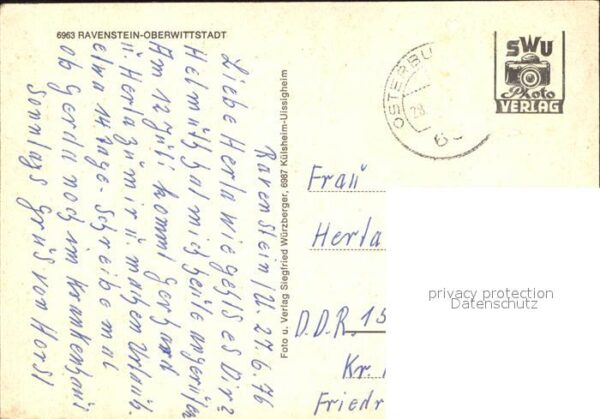 6963 RAVENSTEIN-OBERWITTSTADT
Ravenstein/U. 27.6.76
Liebe Herta wie geht's es Dir?
Helmut hat mich heute angerufen
Am 12 Juli kommt Gerhard
ü Herta zu mir ü machen Urlaub.
etwa 14 Tage. Schreibe mal
ob Gerda noch im Krankenhaus
Sonntags Gruß von Horst
Foto u. Verlag Siegfried Würzberger, 6987 Külsheim-Uissigheim
OSTERBU
28.
SWU
Photo
VERLAG
Frau
Herta
D.D.R. 15
Kr.
Friedr
privacy protection
Datenschutz